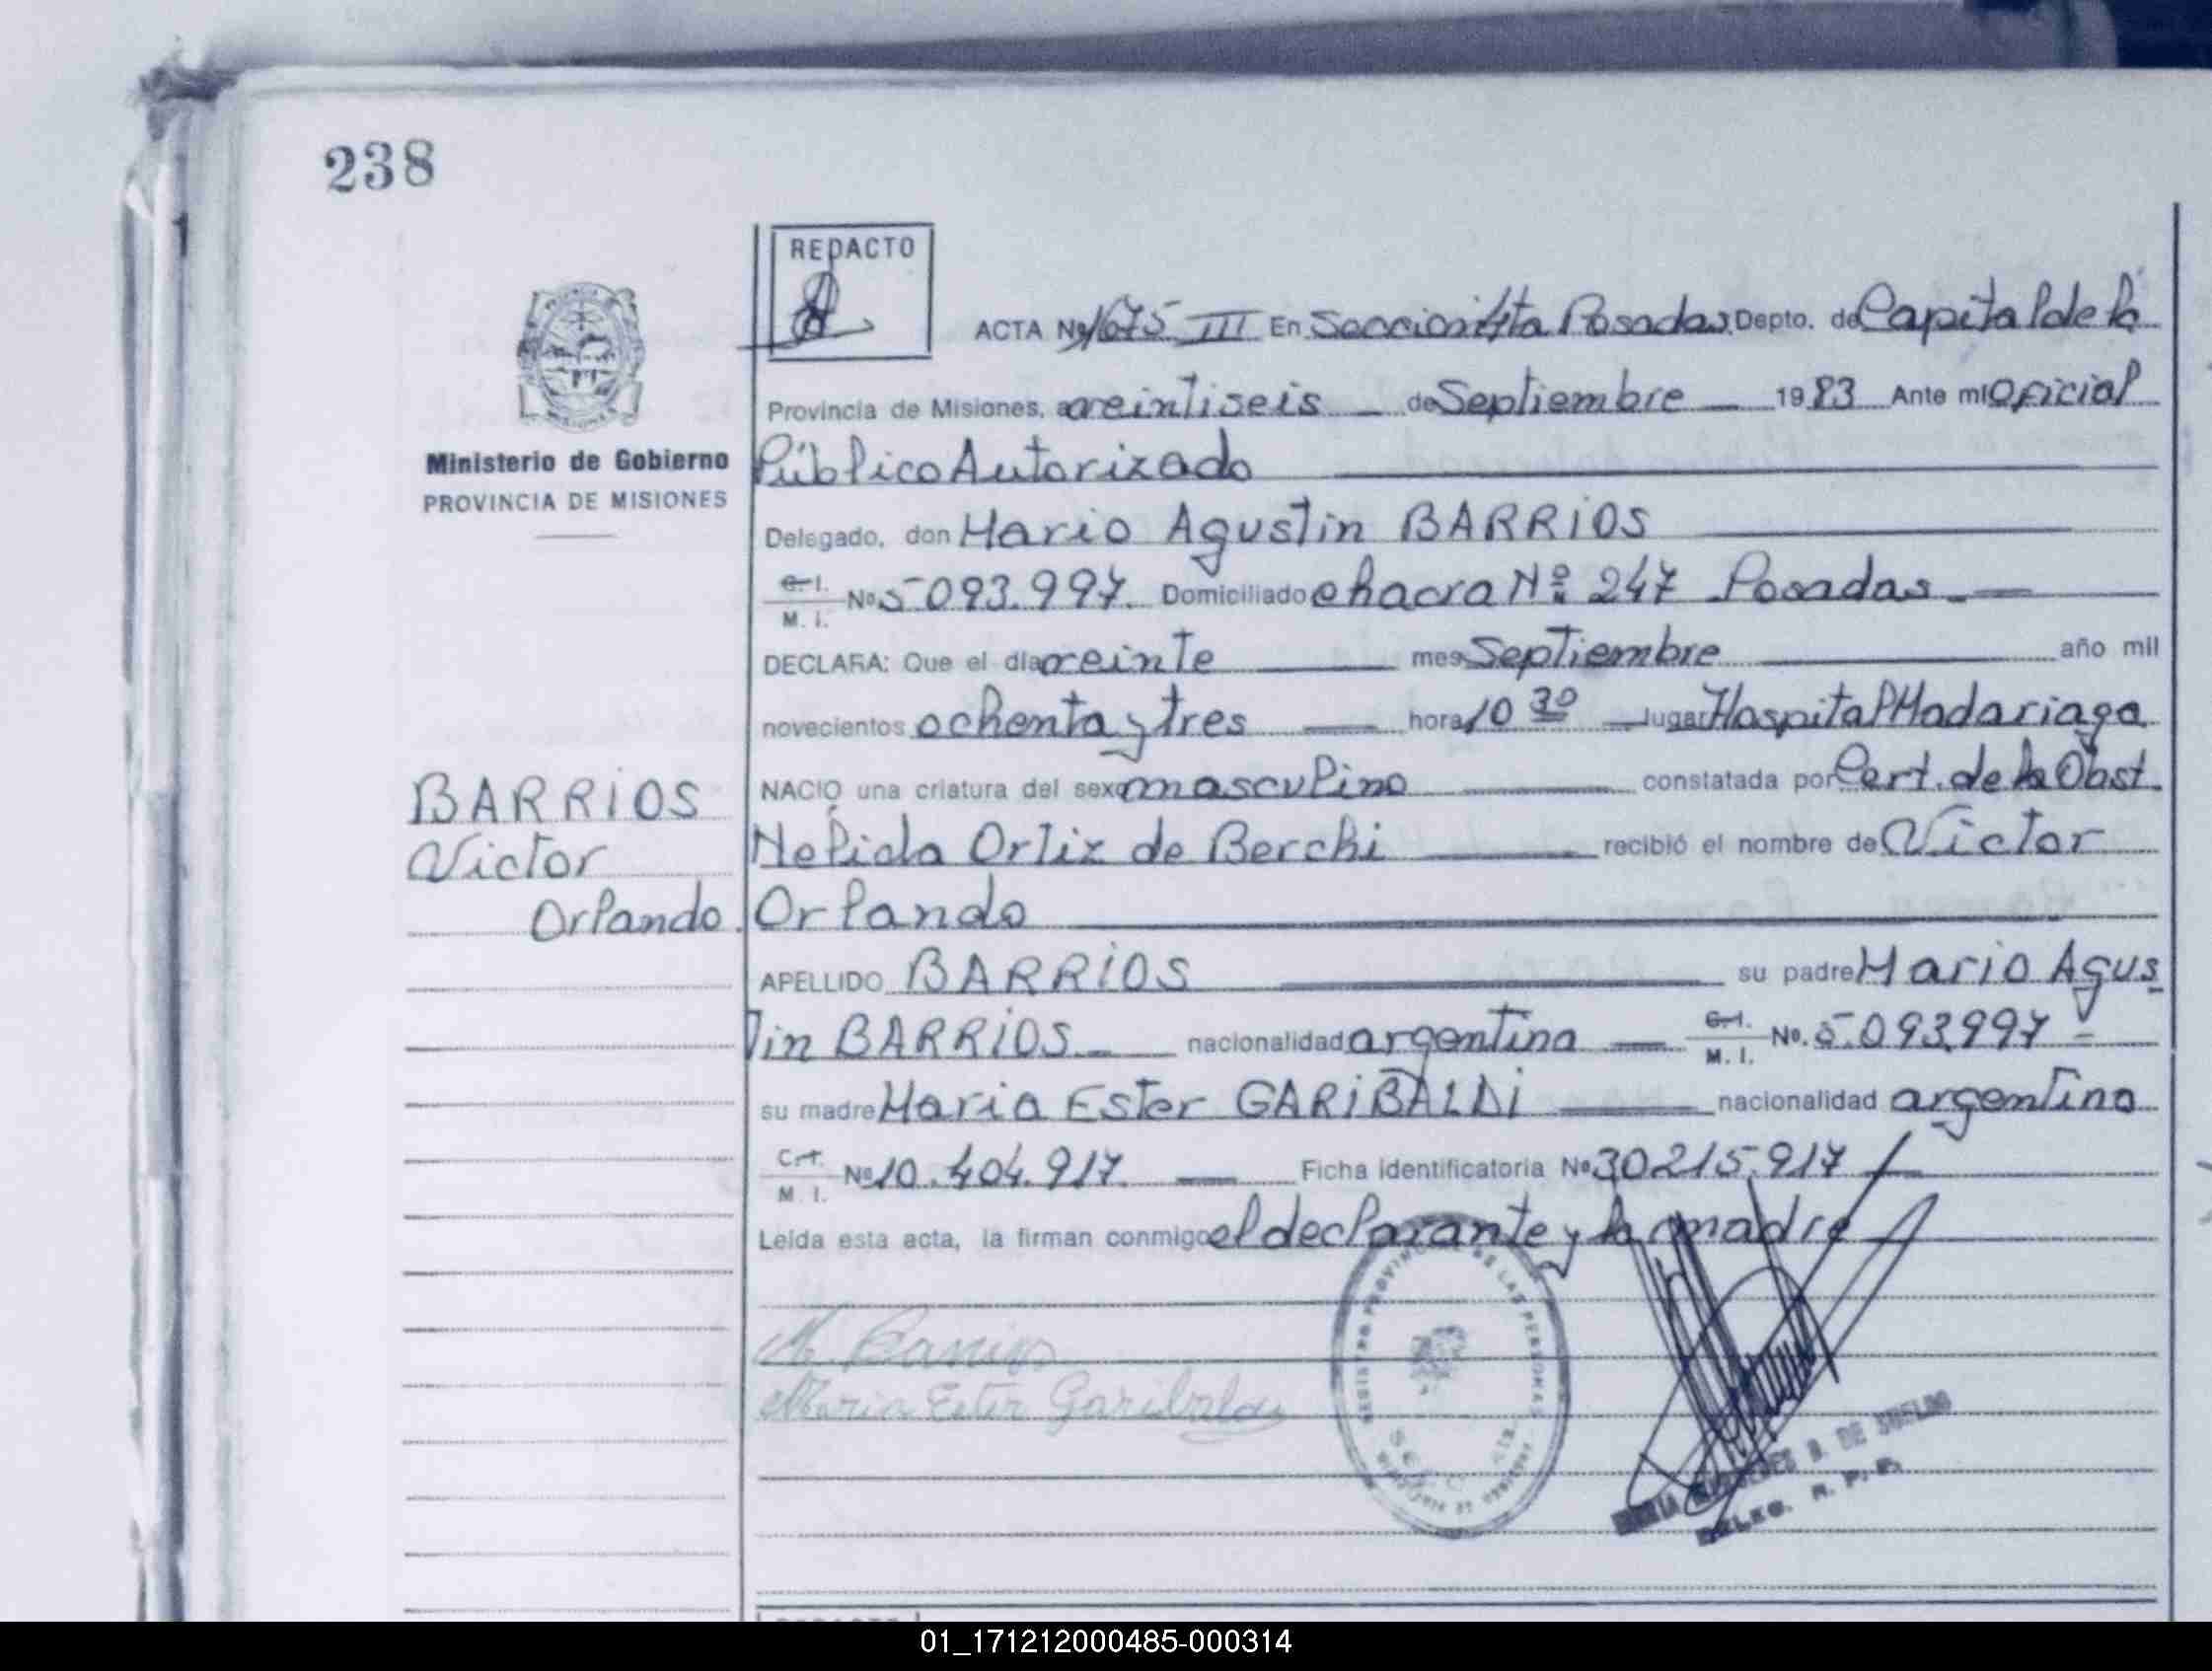 238
REDACTO
ACTA Nº 1675 III En Sección 4ta Posadas Depto. de Capital de la
Provincia de Misiones, a veintiseis de Septiembre 1983 Ante mi Oficial
Ministerio de Gobierno
Público Autorizado
PROVINCIA DE MISIONES
Delegado, don Mario Agustin BARRIOS
C.I. M. I. Nº 5093.997. Domiciliado chacra Nº 247 Posadas.
DECLARA: Que el día veinte mes Septiembre año mil
novecientos ochenta y tres hora 10 30 lugar Hospital Madariaga
BARRIOS
NACIO una criatura del sexo masculino constatada por Cert. de la Obst.
Victor
Nelida Ortiz de Berchi recibió el nombre de Victor
Orlando.
Orlando
APELLIDO BARRIOS su padre Mario Agus
tin BARRIOS nacionalidad argentina C.I. M. I. No. 5.093.997
su madre Maria Ester GARIBALDI nacionalidad argentina
C.I. M. I. Nº 10.404.917. Ficha identificatoria Nº 30215.917
Leída esta acta, la firman conmigo el declarante y la madre
M. Barrios
Maria Ester Garibaldi
REGISTRO PROVINCIAL DE LAS PERSONAS
DE SUELDO
DELEG. R. P. P.
REDACTO
01_171212000485-000314